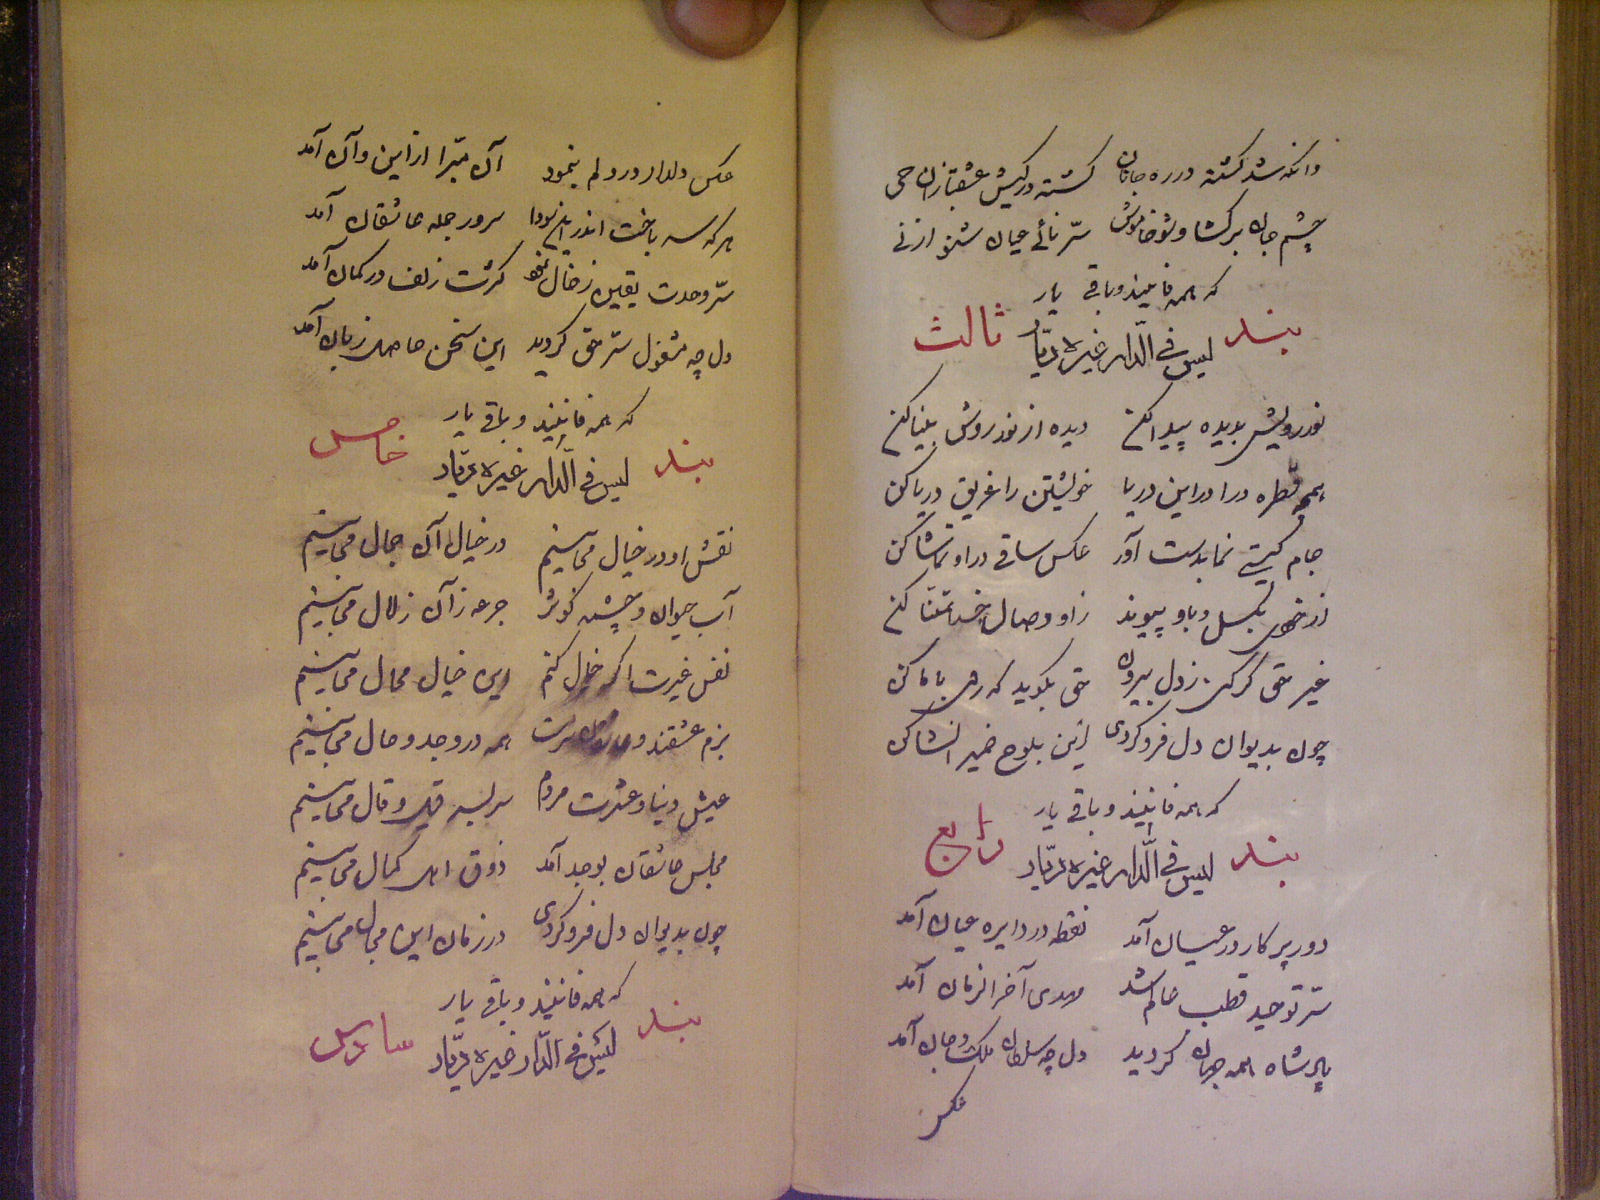 وانکه شد کشته در ره جانان کشته در کیش عشقبازان حی
چشم جان برکشا و شو خاموش سرّ نائے عیان شنو از نے
که همه فانیند و باقے یار
بند لیس فی الدار غیره دیّار ثالث
نور رویش بدیده پیدا کن دیده از نور روش بینا کن
همچو قطره درا در این دریا خویشتن را غریق دریا کن
جام گیتے نما بدست آور عکس ساقے در او تماشا کن
از خودی بگسل و باو پیوند زاو وصال خدا تمنّا کن
غیر حق گر کنی ز دل بیرون حق بگوید که رو باما کن
چون بدیوان دل فرو کردی این بلوح ضمیر انشا کن
که همه فانیند و باقے یار
بند لیس فی الدّار غیره دیّار رابع
دور پرکار در عیان آمد نقطه در دایره عیان آمد
سرّ توحید قطب عالم شد مهدی آخر الزمان آمد
پادشاه همه جهان گردید دل چه سلطان ملک جان آمد
عکس
عکس دلدار در دلم بنمود آن مبّرا از این و آن آمد
هر که سر باخت اندر این سودا سرور جمله عاشقان آمد
سرّ وحدت یقین ز خال نمود کثرت زلف در کمان آمد
دل چه مشغول سرّ حق گردید این سخن حاصل زبان آمد
که همه فانیند و باقے یار
بند لیس فی الدّار غیره دیّار خامس
نقش او در خیال می بینم در خیال آن جمال می بینم
آب حیوان و چشمه کوثر جرعه زآن زلال می بینم
نقس غیرت اگر خیال کنم این خیال محال می بینم
بزم عشقند و عاشقان سرمست همه در وجد و حال می بینم
عیش دنیا و عشرت مردم سر بسر قیل و قال می بینم
مجلس عاشقان بوجد آمد ذوق اهل کمال می بینم
چون بدیوان دل فرو کردی در زمان این مجال می بینم
که همه فانیند و باقے یار
بند لیس فی الدّار غیره دیّار سادس